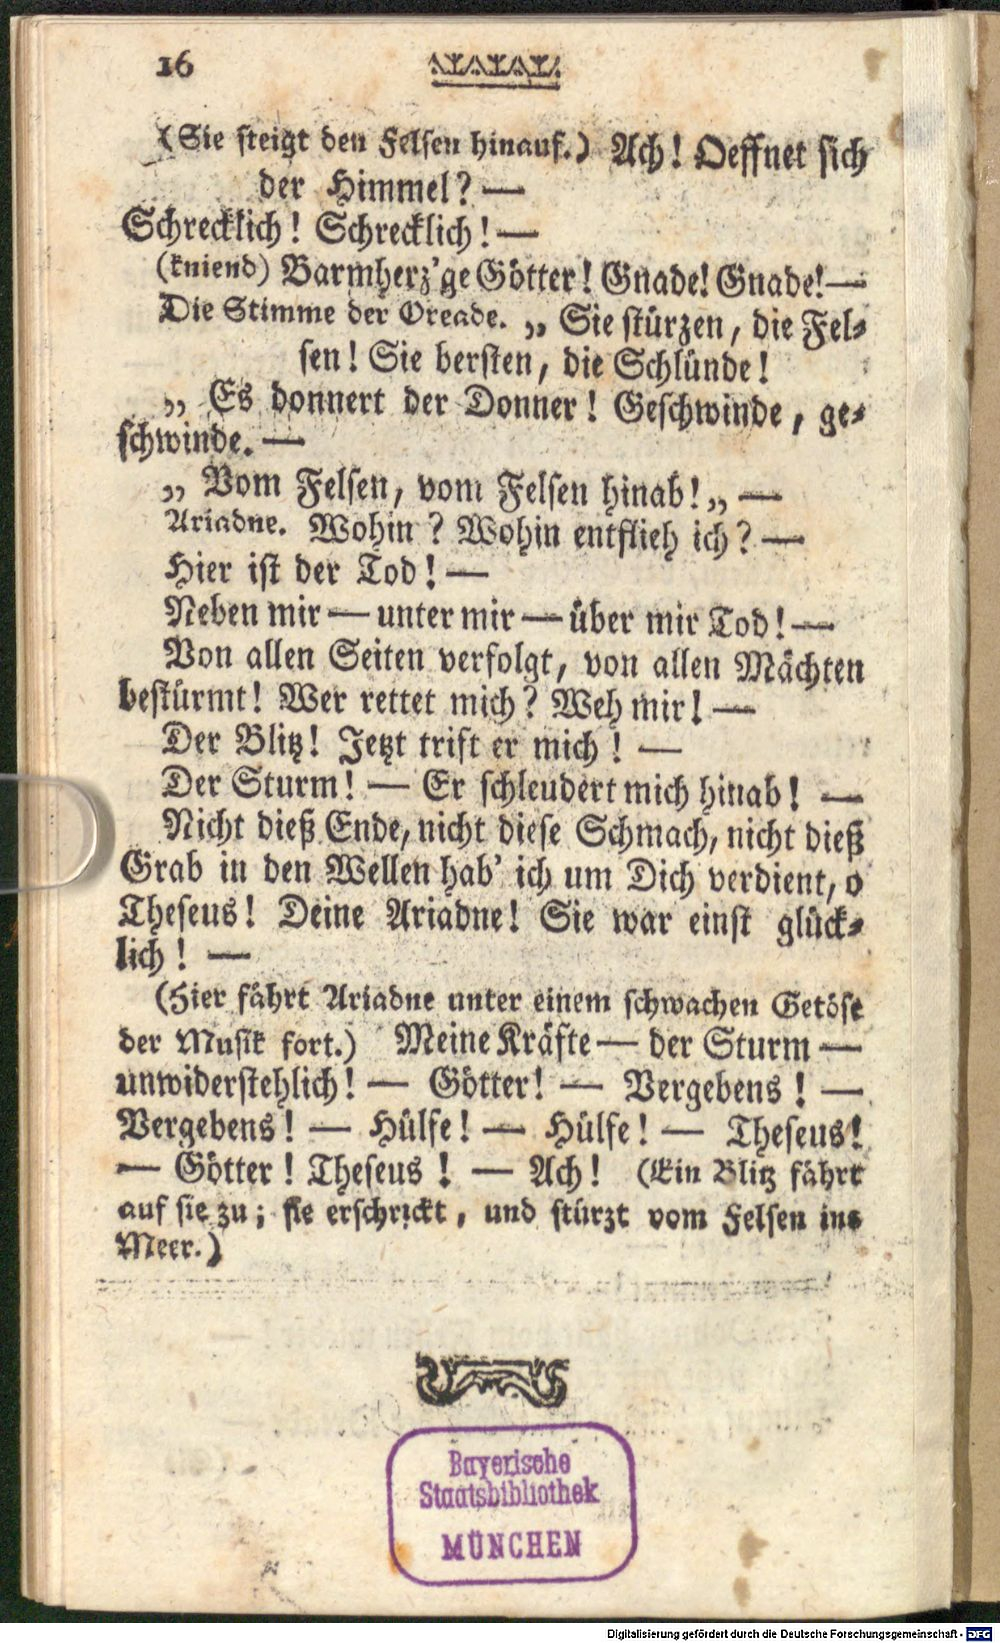 16
(Sie steigt den Felsen hinauf.) Ach! Oeffnet sich
der Himmel? —
Schrecklich! Schrecklich! —
(kniend) Barmherz'ge Götter! Gnade! Gnade! —
Die Stimme der Oreade. „ Sie stürzen, die Fel-
sen! Sie bersten, die Schlünde!
„ Es donnert der Donner! Geschwinde, ge-
schwinde. —
„ Vom Felsen, vom Felsen hinab!„ —
Ariadne. Wohin? Wohin entflieh ich? —
Hier ist der Tod! —
Neben mir — unter mir — über mir Tod! —
Von allen Seiten verfolgt, von allen Mächten
bestürmt! Wer rettet mich? Weh mir! —
Der Blitz! Jetzt trift er mich! —
Der Sturm! — Er schleudert mich hinab! —
Nicht dieß Ende, nicht diese Schmach, nicht dieß
Grab in den Wellen hab' ich um Dich verdient, o
Theseus! Deine Ariadne! Sie war einst glück-
lich! —
(Hier fährt Ariadne unter einem schwachen Getöse
der Musik fort.) Meine Kräfte — der Sturm —
unwiderstehlich! — Götter! — Vergebens! —
Vergebens! — Hülfe! — Hülfe! — Theseus!
— Götter! Theseus! — Ach! (Ein Blitz fährt
auf sie zu; sie erschrickt, und stürzt vom Felsen ins
Meer.)
Bayerische
Staatsbibliothek
MÜNCHEN
Digitalisierung gefördert durch die Deutsche Forschungsgemeinschaft - DFG